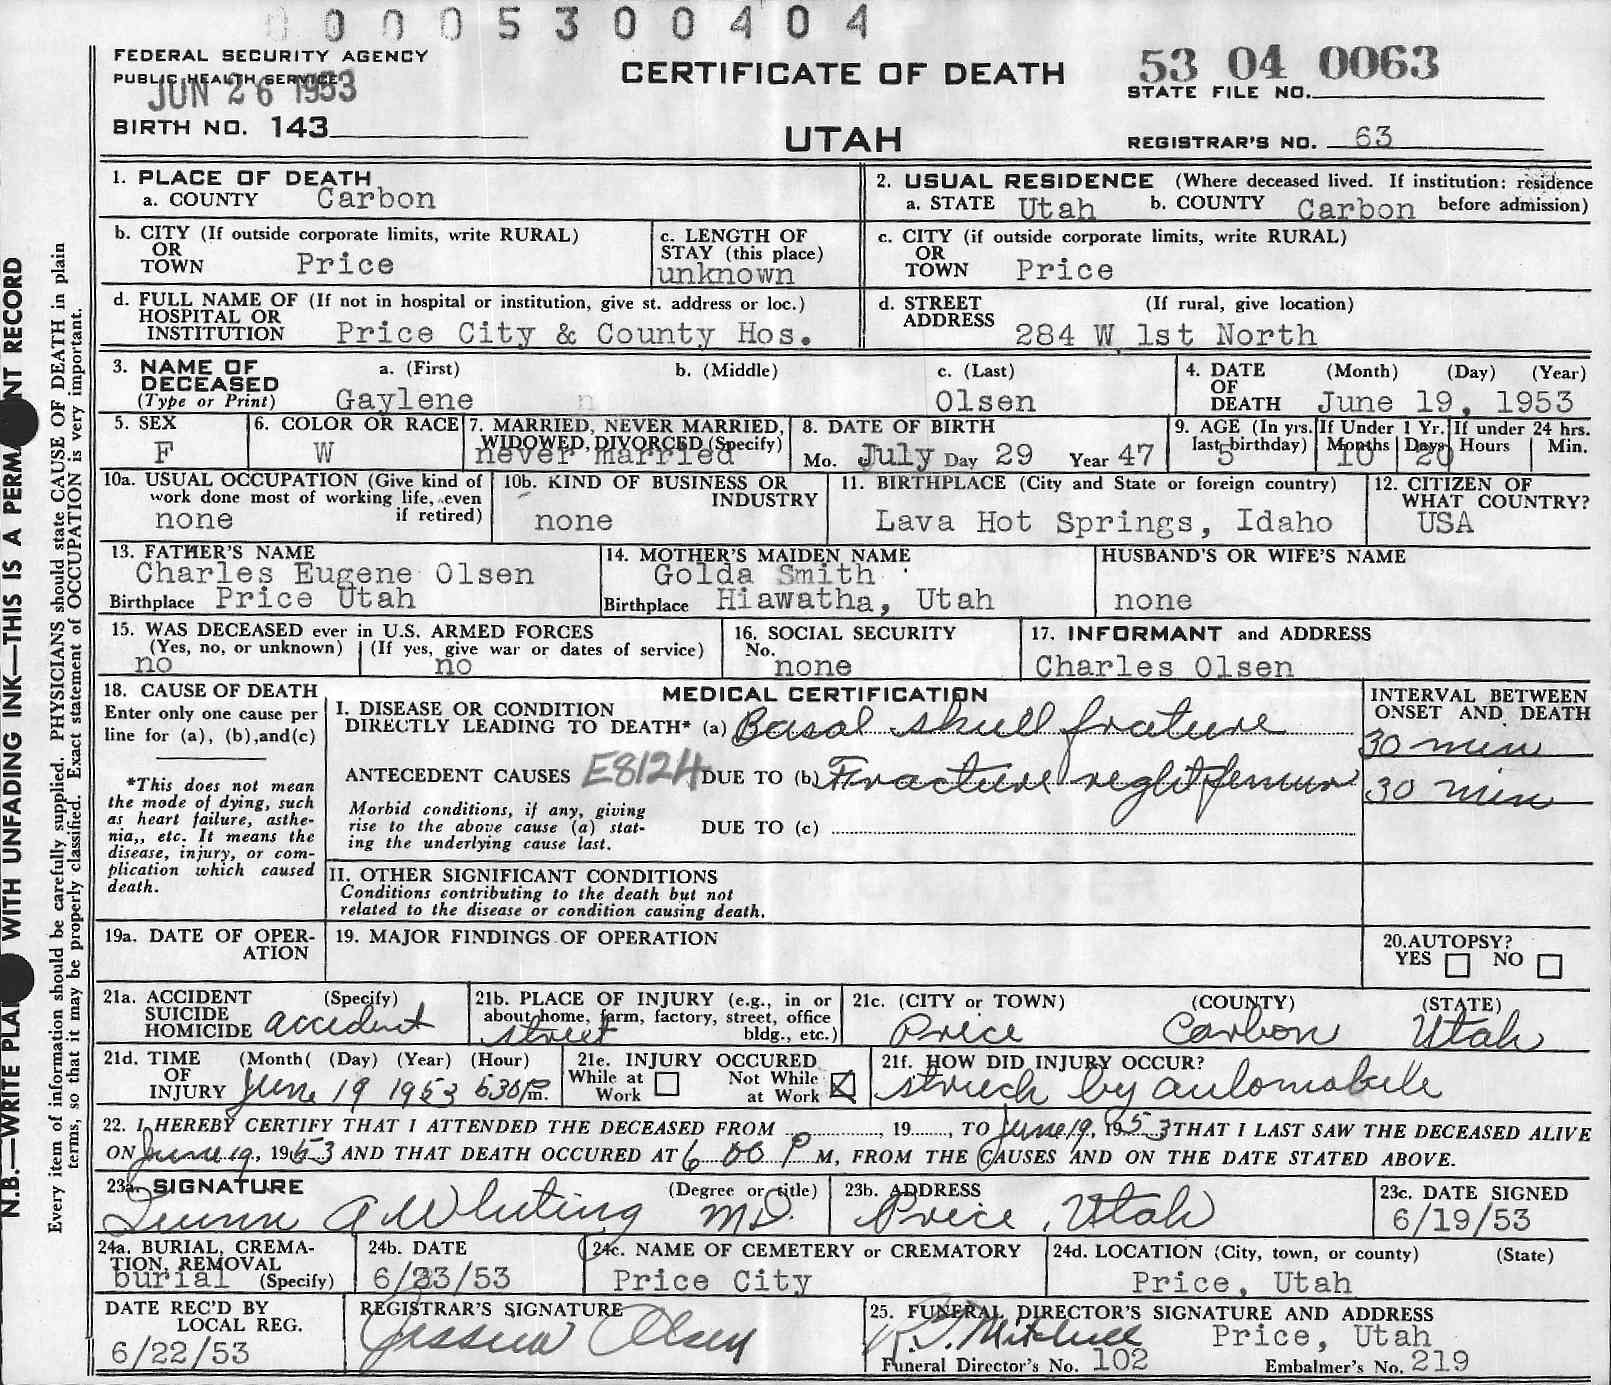 0 0 0 0 5 3 0 0 4 0 4
FEDERAL SECURITY AGENCY
PUBLIC HEALTH SERVICE
JUN 26 1953
CERTIFICATE OF DEATH
53 04 0063
STATE FILE NO.
BIRTH NO. 143
UTAH
REGISTRAR'S NO. 63
1. PLACE OF DEATH
a. COUNTY Carbon
2. USUAL RESIDENCE (Where deceased lived. If institution: residence
a. STATE Utah b. COUNTY Carbon before admission)
b. CITY (If outside corporate limits, write RURAL)
OR
TOWN Price
c. LENGTH OF
STAY (this place)
unknown
c. CITY (if outside corporate limits, write RURAL)
OR
TOWN Price
d. FULL NAME OF (If not in hospital or institution, give st. address or loc.)
HOSPITAL OR
INSTITUTION Price City & County Hos.
d. STREET (If rural, give location)
ADDRESS 284 W 1st North
3. NAME OF a. (First) b. (Middle) c. (Last)
DECEASED
(Type or Print) Gaylene Olsen
4. DATE (Month) (Day) (Year)
OF
DEATH June 19, 1953
5. SEX
F
6. COLOR OR RACE
W
7. MARRIED, NEVER MARRIED,
WIDOWED, DIVORCED (Specify)
never married
8. DATE OF BIRTH
Mo. July Day 29 Year 47
9. AGE (In yrs. If Under 1 Yr. If under 24 hrs.
last birthday) Months Days Hours Min.
5 10 20
10a. USUAL OCCUPATION (Give kind of
work done most of working life, even
if retired)
none
10b. KIND OF BUSINESS OR
INDUSTRY
none
11. BIRTHPLACE (City and State or foreign country)
Lava Hot Springs, Idaho
12. CITIZEN OF
WHAT COUNTRY?
USA
13. FATHER'S NAME
Charles Eugene Olsen
Birthplace Price Utah
14. MOTHER'S MAIDEN NAME
Golda Smith
Birthplace Hiawatha, Utah
HUSBAND'S OR WIFE'S NAME
none
15. WAS DECEASED ever in U.S. ARMED FORCES
(Yes, no, or unknown) (If yes, give war or dates of service)
no no
16. SOCIAL SECURITY
No.
none
17. INFORMANT and ADDRESS
Charles Olsen
18. CAUSE OF DEATH
Enter only one cause per
line for (a), (b),and(c)
*This does not mean
the mode of dying, such
as heart failure, asthe-
nia,, etc. It means the
disease, injury, or com-
plication which caused
death.
MEDICAL CERTIFICATION
I. DISEASE OR CONDITION
DIRECTLY LEADING TO DEATH* (a) Basal skull frature
ANTECEDENT CAUSES E8124 DUE TO (b) Fracture right femur
Morbid conditions, if any, giving
rise to the above cause (a) stat-
ing the underlying cause last.
DUE TO (c)
INTERVAL BETWEEN
ONSET AND DEATH
30 min
30 min
II. OTHER SIGNIFICANT CONDITIONS
Conditions contributing to the death but not
related to the disease or condition causing death.
19a. DATE OF OPER-
ATION
19. MAJOR FINDINGS OF OPERATION
20. AUTOPSY?
YES NO
21a. ACCIDENT (Specify)
SUICIDE
HOMICIDE accident
21b. PLACE OF INJURY (e.g., in or
about home, farm, factory, street, office
bldg., etc.)
street
21c. (CITY or TOWN) (COUNTY) (STATE)
Price Carbon Utah
21d. TIME (Month( (Day) (Year) (Hour)
OF
INJURY June 19 1953 530 P m.
21e. INJURY OCCURED
While at Work Not While at Work
21f. HOW DID INJURY OCCUR?
struck by automobile
22. I HEREBY CERTIFY THAT I ATTENDED THE DECEASED FROM , 19 , TO June 19, 1953 THAT I LAST SAW THE DECEASED ALIVE
ON June 19, 1953 AND THAT DEATH OCCURED AT 6 00 P M, FROM THE CAUSES AND ON THE DATE STATED ABOVE.
23a. SIGNATURE (Degree or title)
Quinn A Whiting M.D.
23b. ADDRESS
Price, Utah
23c. DATE SIGNED
6/19/53
24a. BURIAL, CREMA-
TION, REMOVAL
burial (Specify)
24b. DATE
6/23/53
24c. NAME OF CEMETERY or CREMATORY
Price City
24d. LOCATION (City, town, or county) (State)
Price, Utah
DATE REC'D BY
LOCAL REG.
6/22/53
REGISTRAR'S SIGNATURE
Olsen
25. FUNERAL DIRECTOR'S SIGNATURE AND ADDRESS
Mitchell Price, Utah
Funeral Director's No. 102 Embalmer's No. 219
N.B.—WRITE WITH UNFADING INK—THIS IS A RECORD
Every item of information should be carefully supplied. PHYSICIANS should state CAUSE OF DEATH in plain
terms, so that it may be properly classified. Exact statement of OCCUPATION is very important.